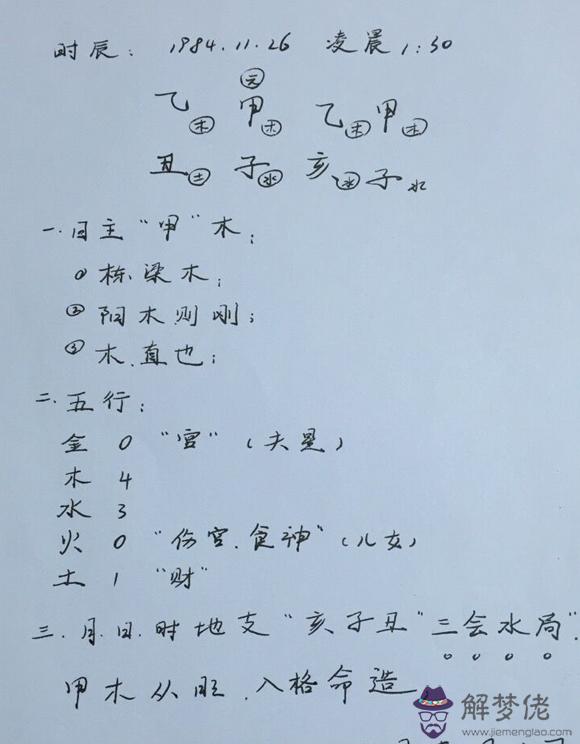 时辰: 1984.11.26 凌晨1:30
元
乙木 甲木 乙木 甲木
丑土 子水 亥水 子水
一.日主"甲"木;
①栋梁木;
②阳木则刚;
③木.直也;
二.五行:
金 0 "宫"(夫星)
木 4
水 3
火 0 "伤宫.食神"(儿女)
土 1 "财"
三.月.日.时地支"亥子丑"三会水局".
甲木从旺.入格命造
解梦佬
www.jiemenglao.com